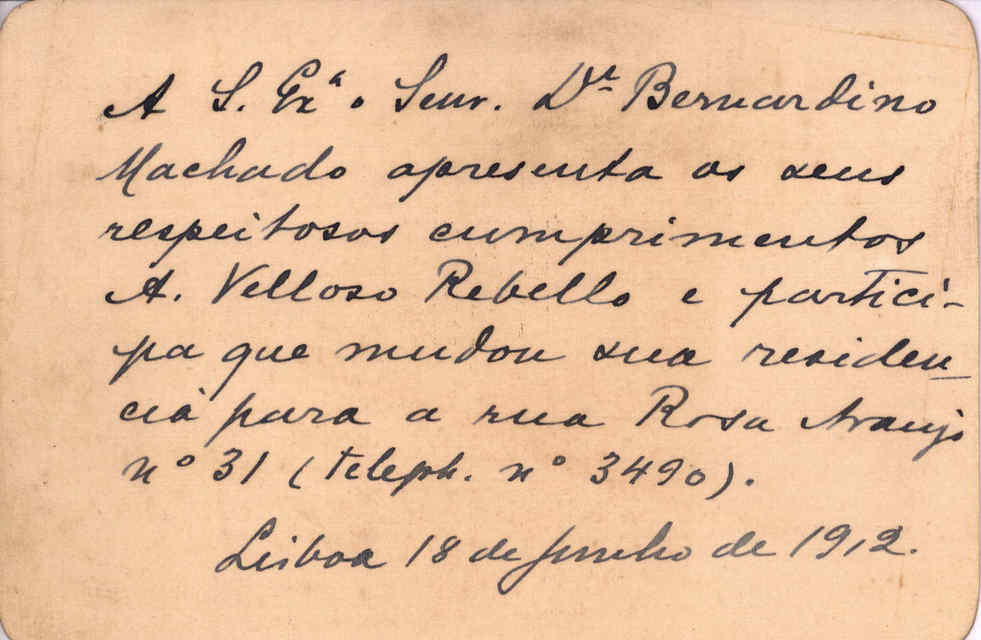 A S. Exª o Senr. Dr. Bernardino
Machado apresenta os seus
respeitosos cumprimentos
A. Velloso Rebello e partici-
pa que mudou sua residen-
cia para a rua Rosa Araujo
nº 31 (teleph. nº 3490).
Lisboa 18 de Junho de 1912.